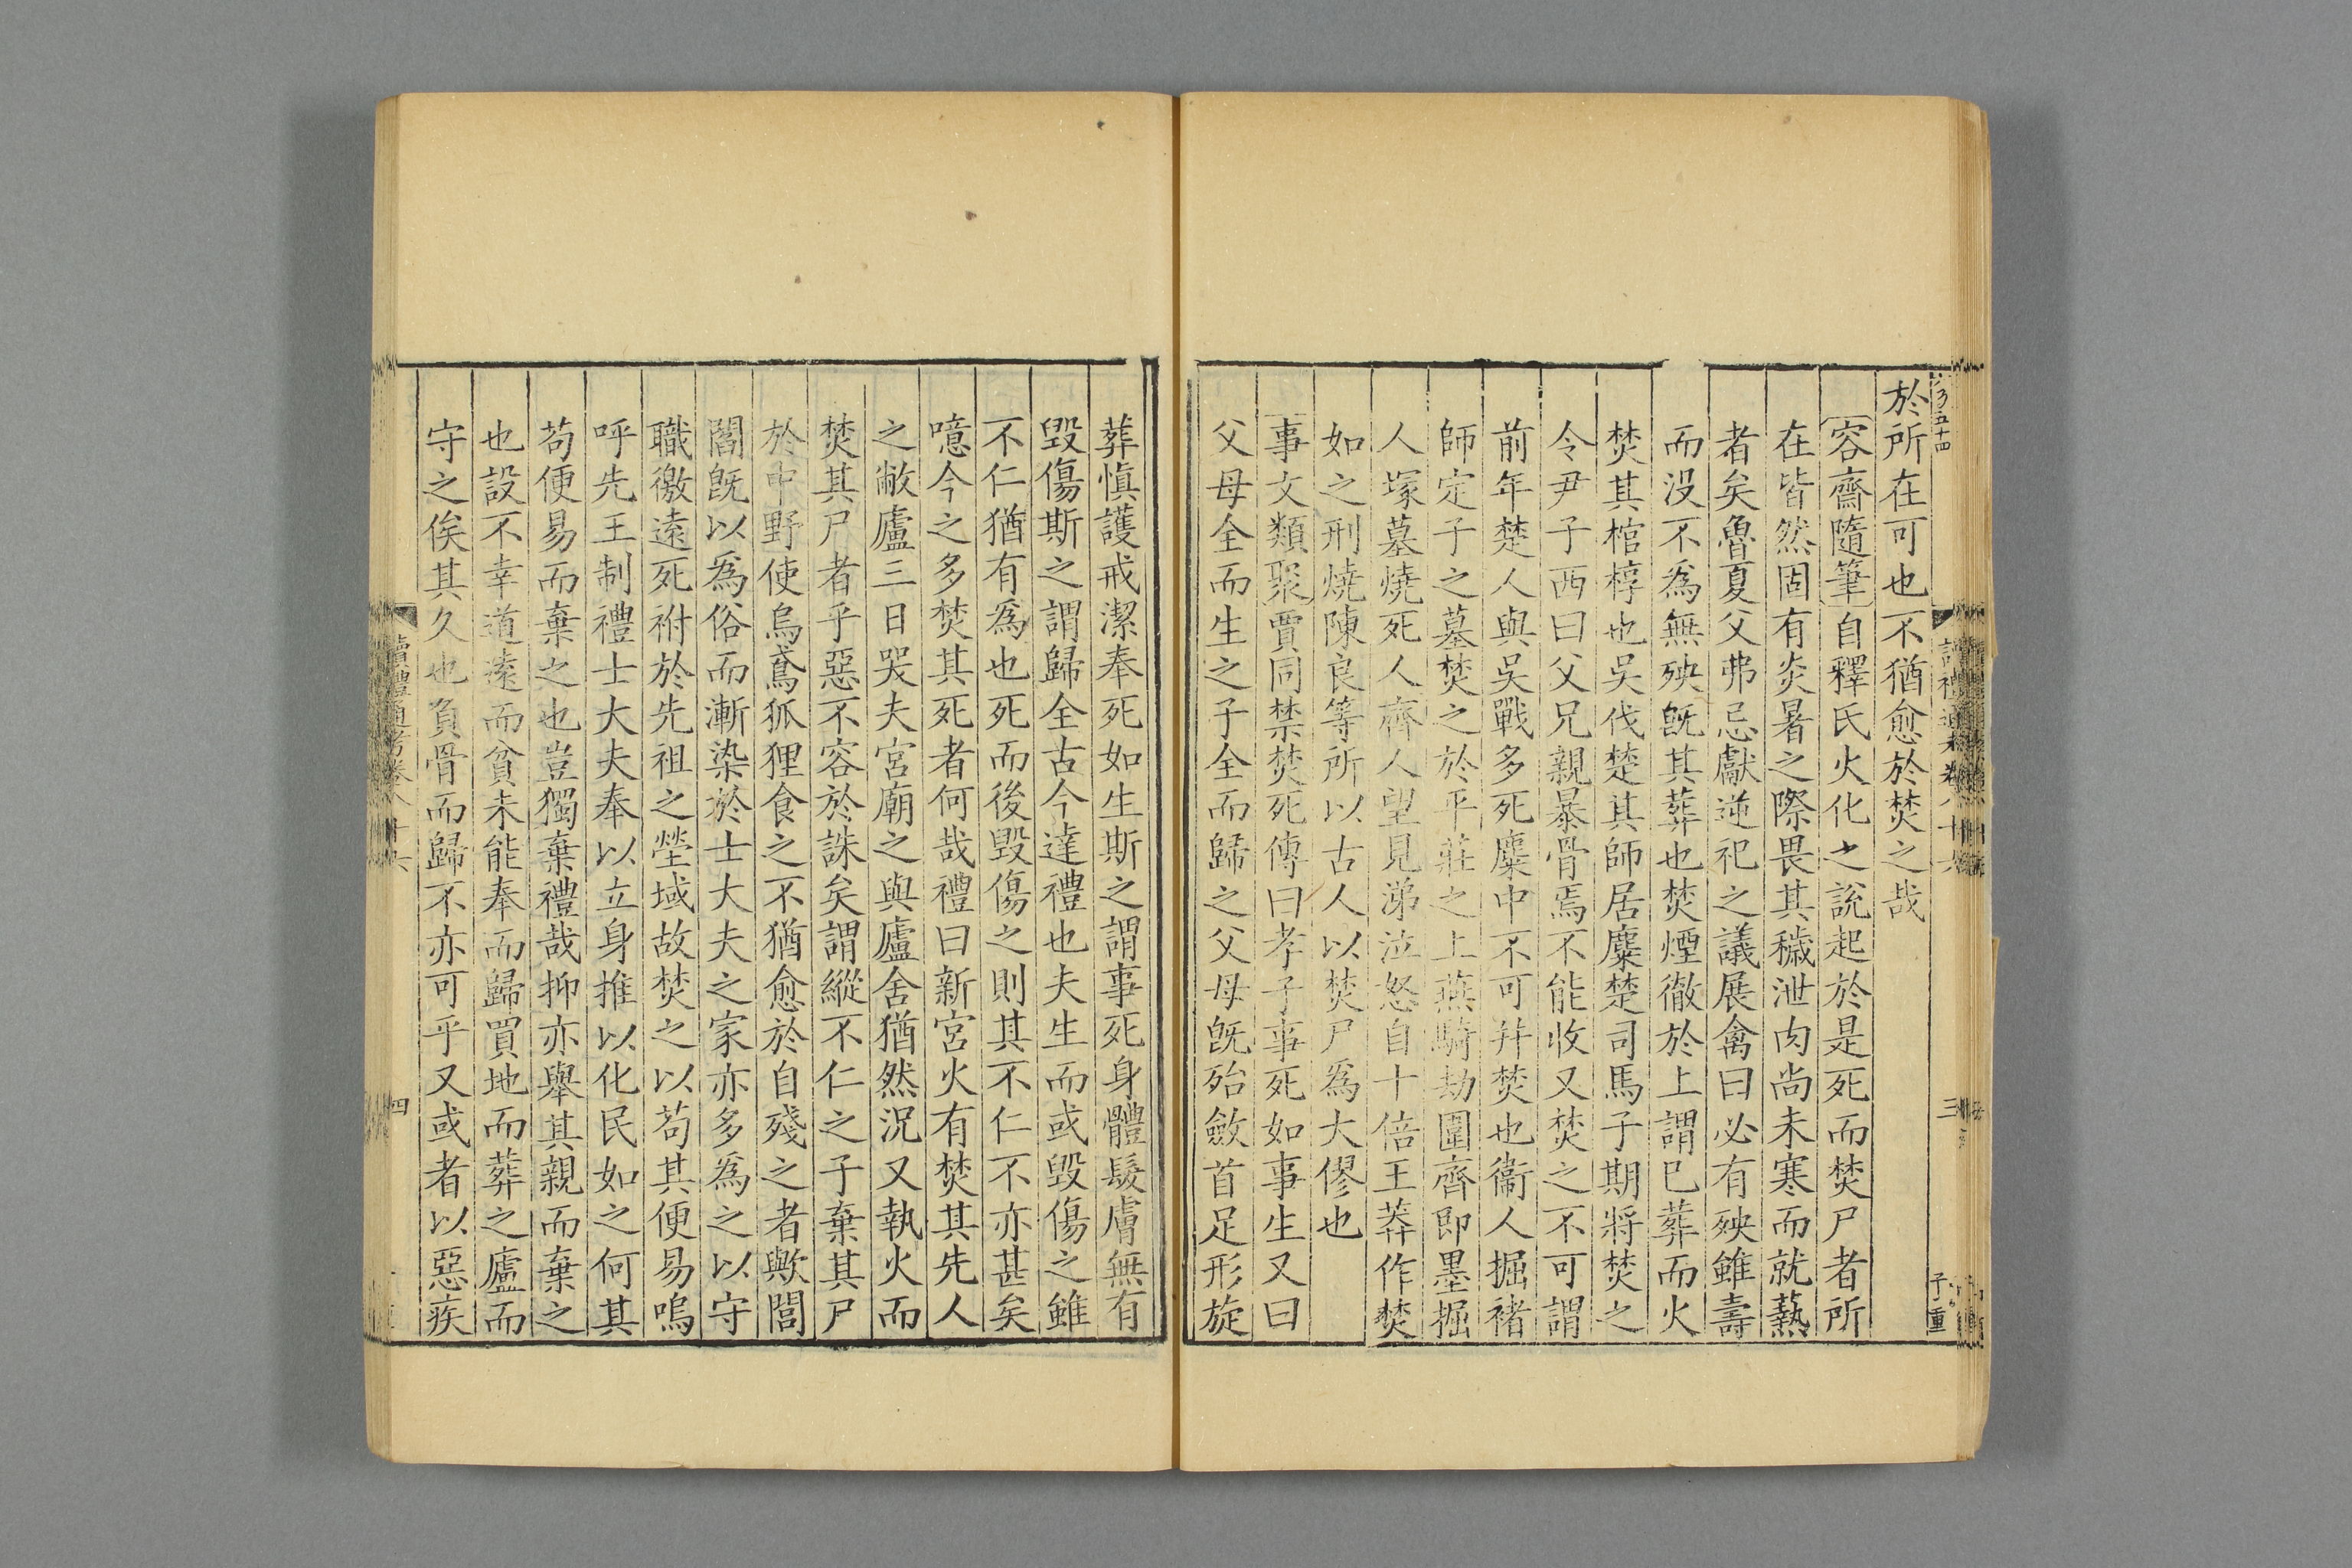 於所在可也不猶愈於焚之哉
容齋隨筆自釋氏火化之說起於是死而焚尸者所
在皆然固有炎暑之際畏其穢泄肉尚未寒而就爇
者矣魯夏父弗忌獻逆祀之議展禽曰必有殃雖壽
而没不為無殃旣其葬也焚煙徹於上謂已葬而火
焚其棺椁也吳伐楚其師居麋楚司馬子期將焚之
令尹子西曰父兄親暴骨焉不能收又焚之不可謂
前年楚人與吳戰多死麋中不可幷焚也衞人掘褚
師定子之墓焚之於平莊之上燕騎劫圍齊即墨掘
人塚墓燒死人齊人望見涕泣怒自十倍王莽作焚
如之刑燒陳良等所以古人以焚尸爲大僇也
事文類聚賈同禁焚死傳曰孝子事死如事生又曰
父母全而生之子全而歸之父母旣殆斂首足形旋
葬愼護戒潔奉死如生斯之謂事死身體髮膚無有
毀傷斯之謂歸全古今達禮也夫生而或毀傷之雖
不仁猶有爲也死而後毀傷之則其不仁不亦甚矣
噫今之多焚其死者何哉禮曰新宮火有焚其先人
之敝廬三日哭夫宮廟之與廬舍猶然況又執火而
焚其尸者乎惡不容於誅矣謂縱不仁之子棄其尸
於中野使烏鳶狐狸食之不猶愈於自殘之者歟閭
閻旣以爲俗而漸染於士大夫之家亦多爲之以守
職徼遠死祔於先祖之塋域故焚之以苟其便易嗚
呼先王制禮士大夫奉以立身推以化民如之何其
苟便易而棄之也豈獨棄禮哉抑亦舉其親而棄之
也設不幸道遠而貧未能奉而歸買地而葬之廬而
守之俟其久也負骨而歸不亦可乎又或者以惡疾
讀禮通考卷八十六
四